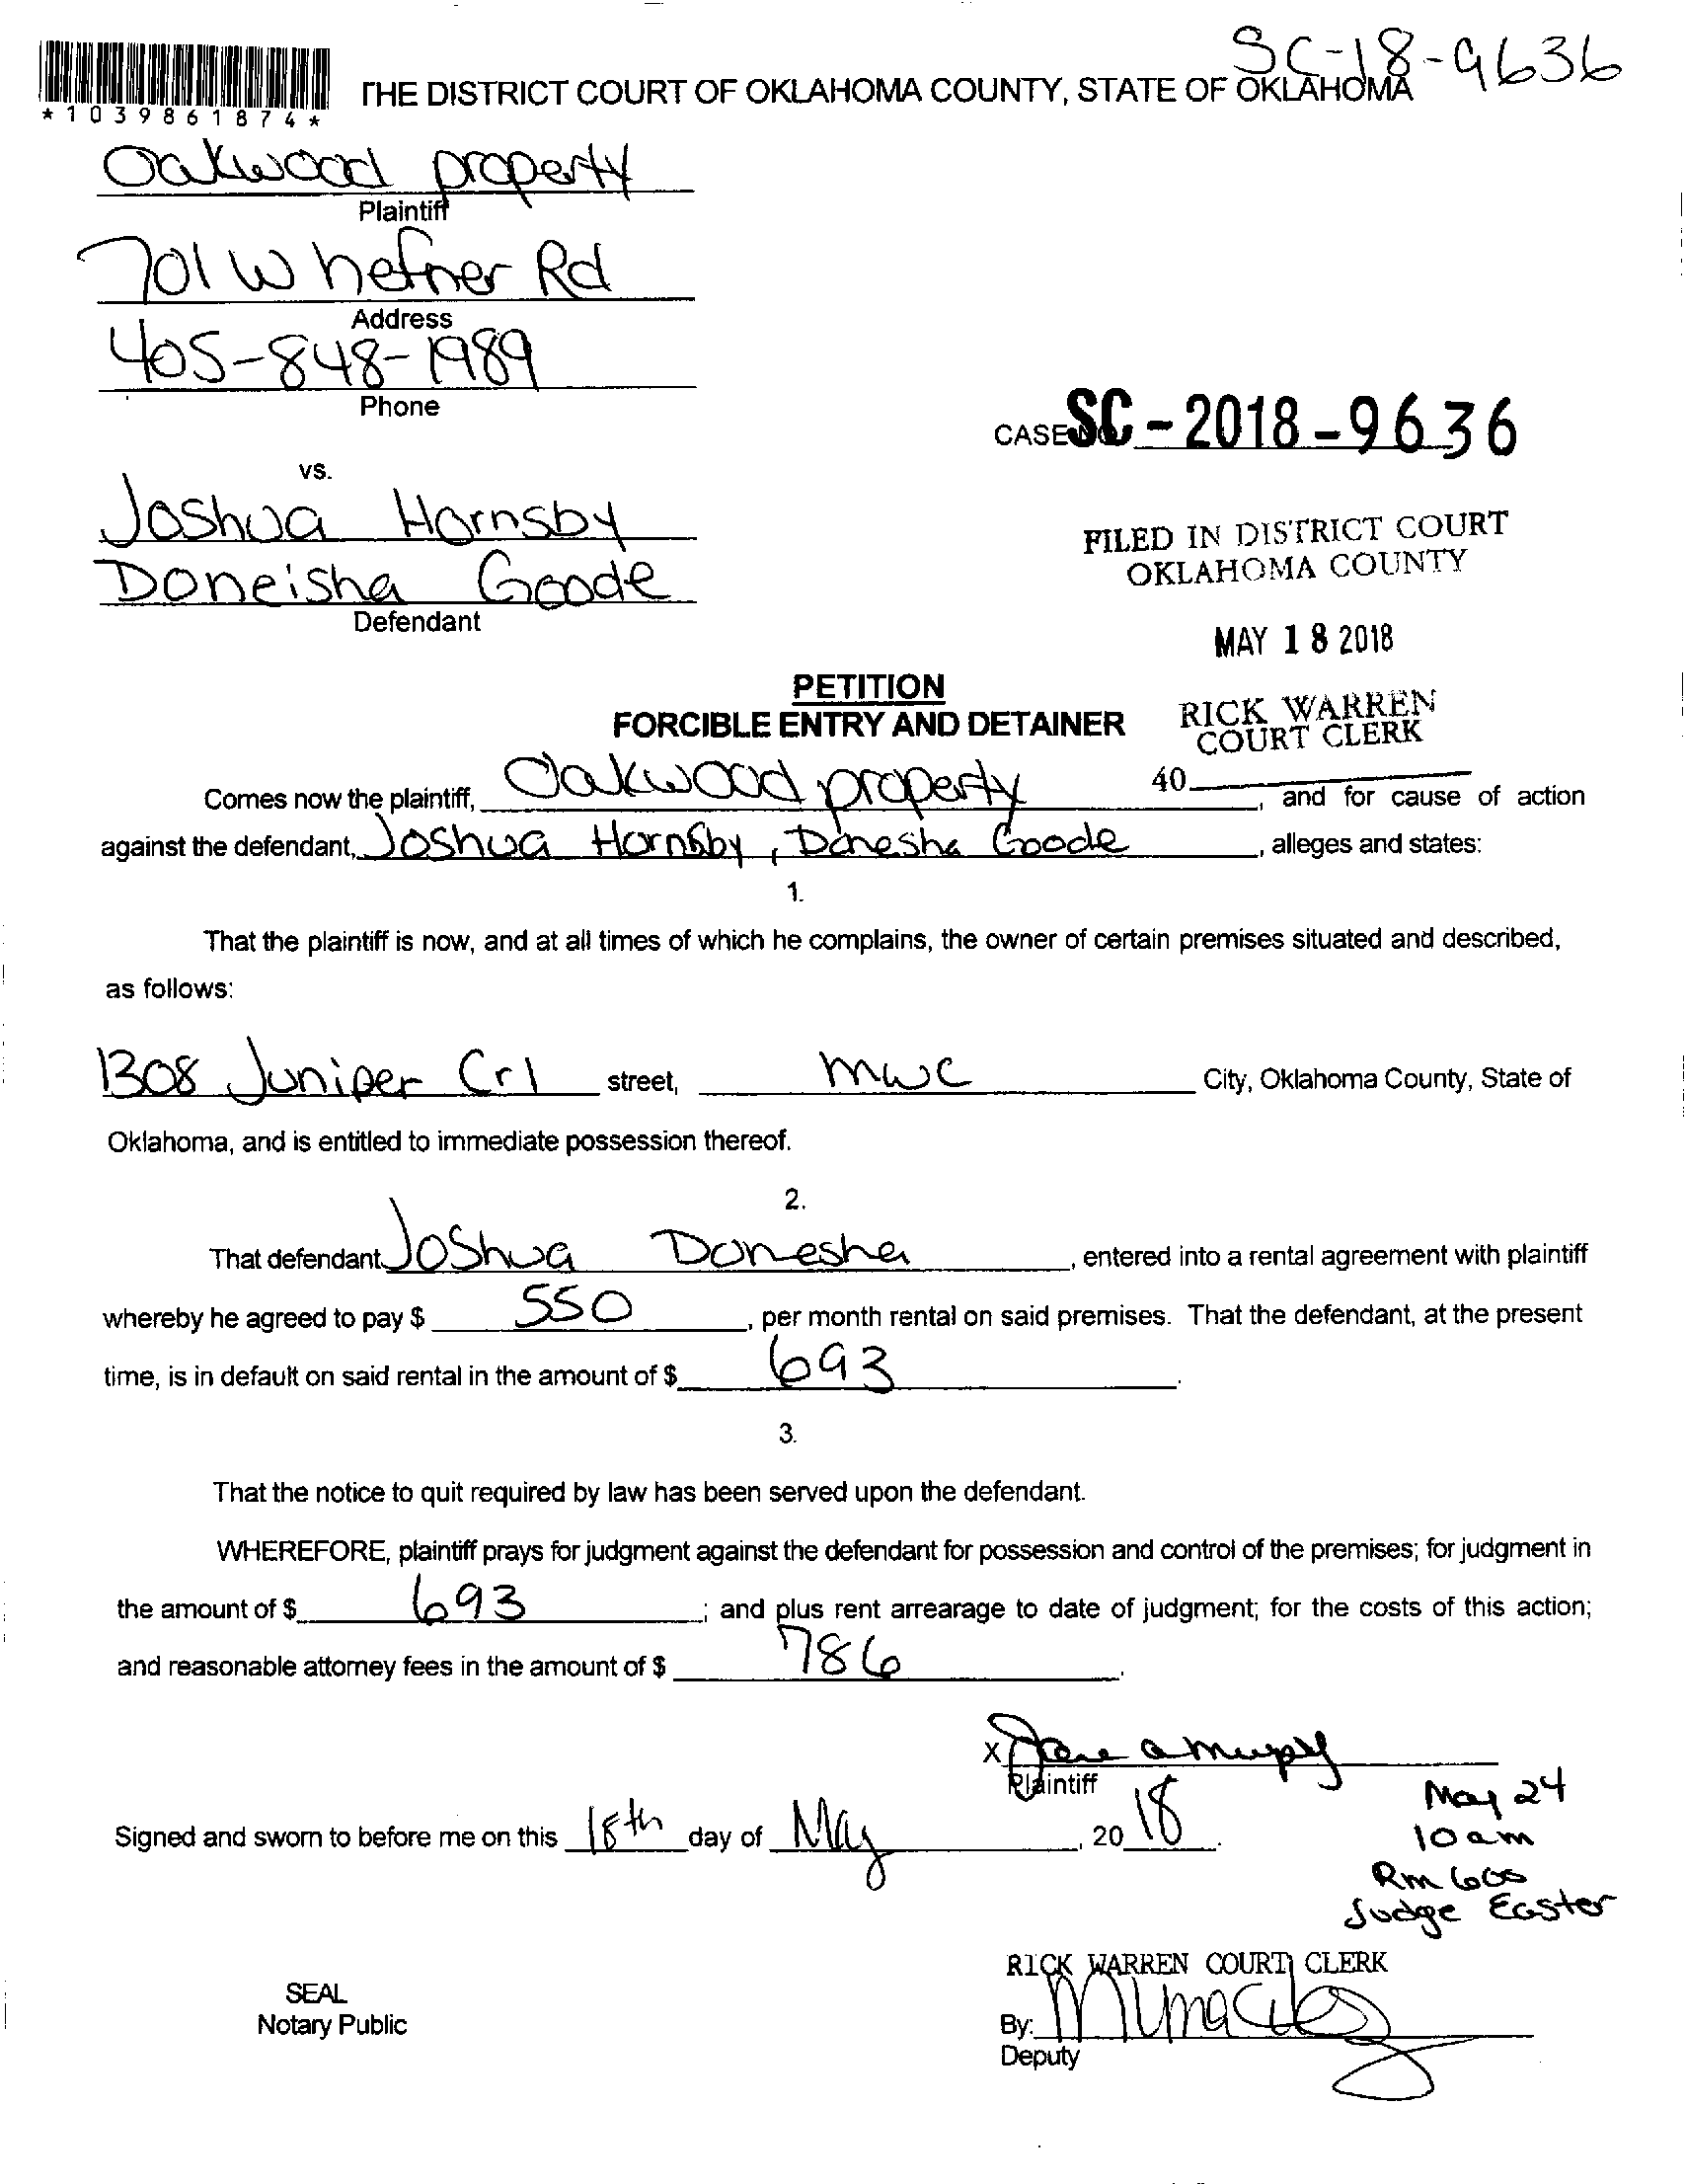 SC-18-9636
THE DISTRICT COURT OF OKLAHOMA COUNTY, STATE OF OKLAHOMA
*1039861874*
Oakwood property
Plaintiff
701 W hefner Rd
Address
405-848-1989
Phone
CASE NO. SC-2018-9636
vs.
Joshua Hornsby
Doneisha Goode
Defendant
FILED IN DISTRICT COURT
OKLAHOMA COUNTY
MAY 18 2018
RICK WARREN
COURT CLERK
40
PETITION
FORCIBLE ENTRY AND DETAINER
Comes now the plaintiff, Oakwood property, and for cause of action
against the defendant, Joshua Hornsby, Donesha Goode, alleges and states:
1.
That the plaintiff is now, and at all times of which he complains, the owner of certain premises situated and described,
as follows:
1308 Juniper Crl street, mwc City, Oklahoma County, State of
Oklahoma, and is entitled to immediate possession thereof.
2.
That defendant Joshua Donesha, entered into a rental agreement with plaintiff
whereby he agreed to pay $ 550, per month rental on said premises. That the defendant, at the present
time, is in default on said rental in the amount of $ 693.
3.
That the notice to quit required by law has been served upon the defendant.
WHEREFORE, plaintiff prays for judgment against the defendant for possession and control of the premises; for judgment in
the amount of $ 693; and plus rent arrearage to date of judgment; for the costs of this action;
and reasonable attorney fees in the amount of $ 786.
x
Plaintiff
Signed and sworn to before me on this 18th day of May, 2018.
May 24
10am
Rm 600
Judge Easter
RICK WARREN COURT CLERK
SEAL
Notary Public
By:
Deputy